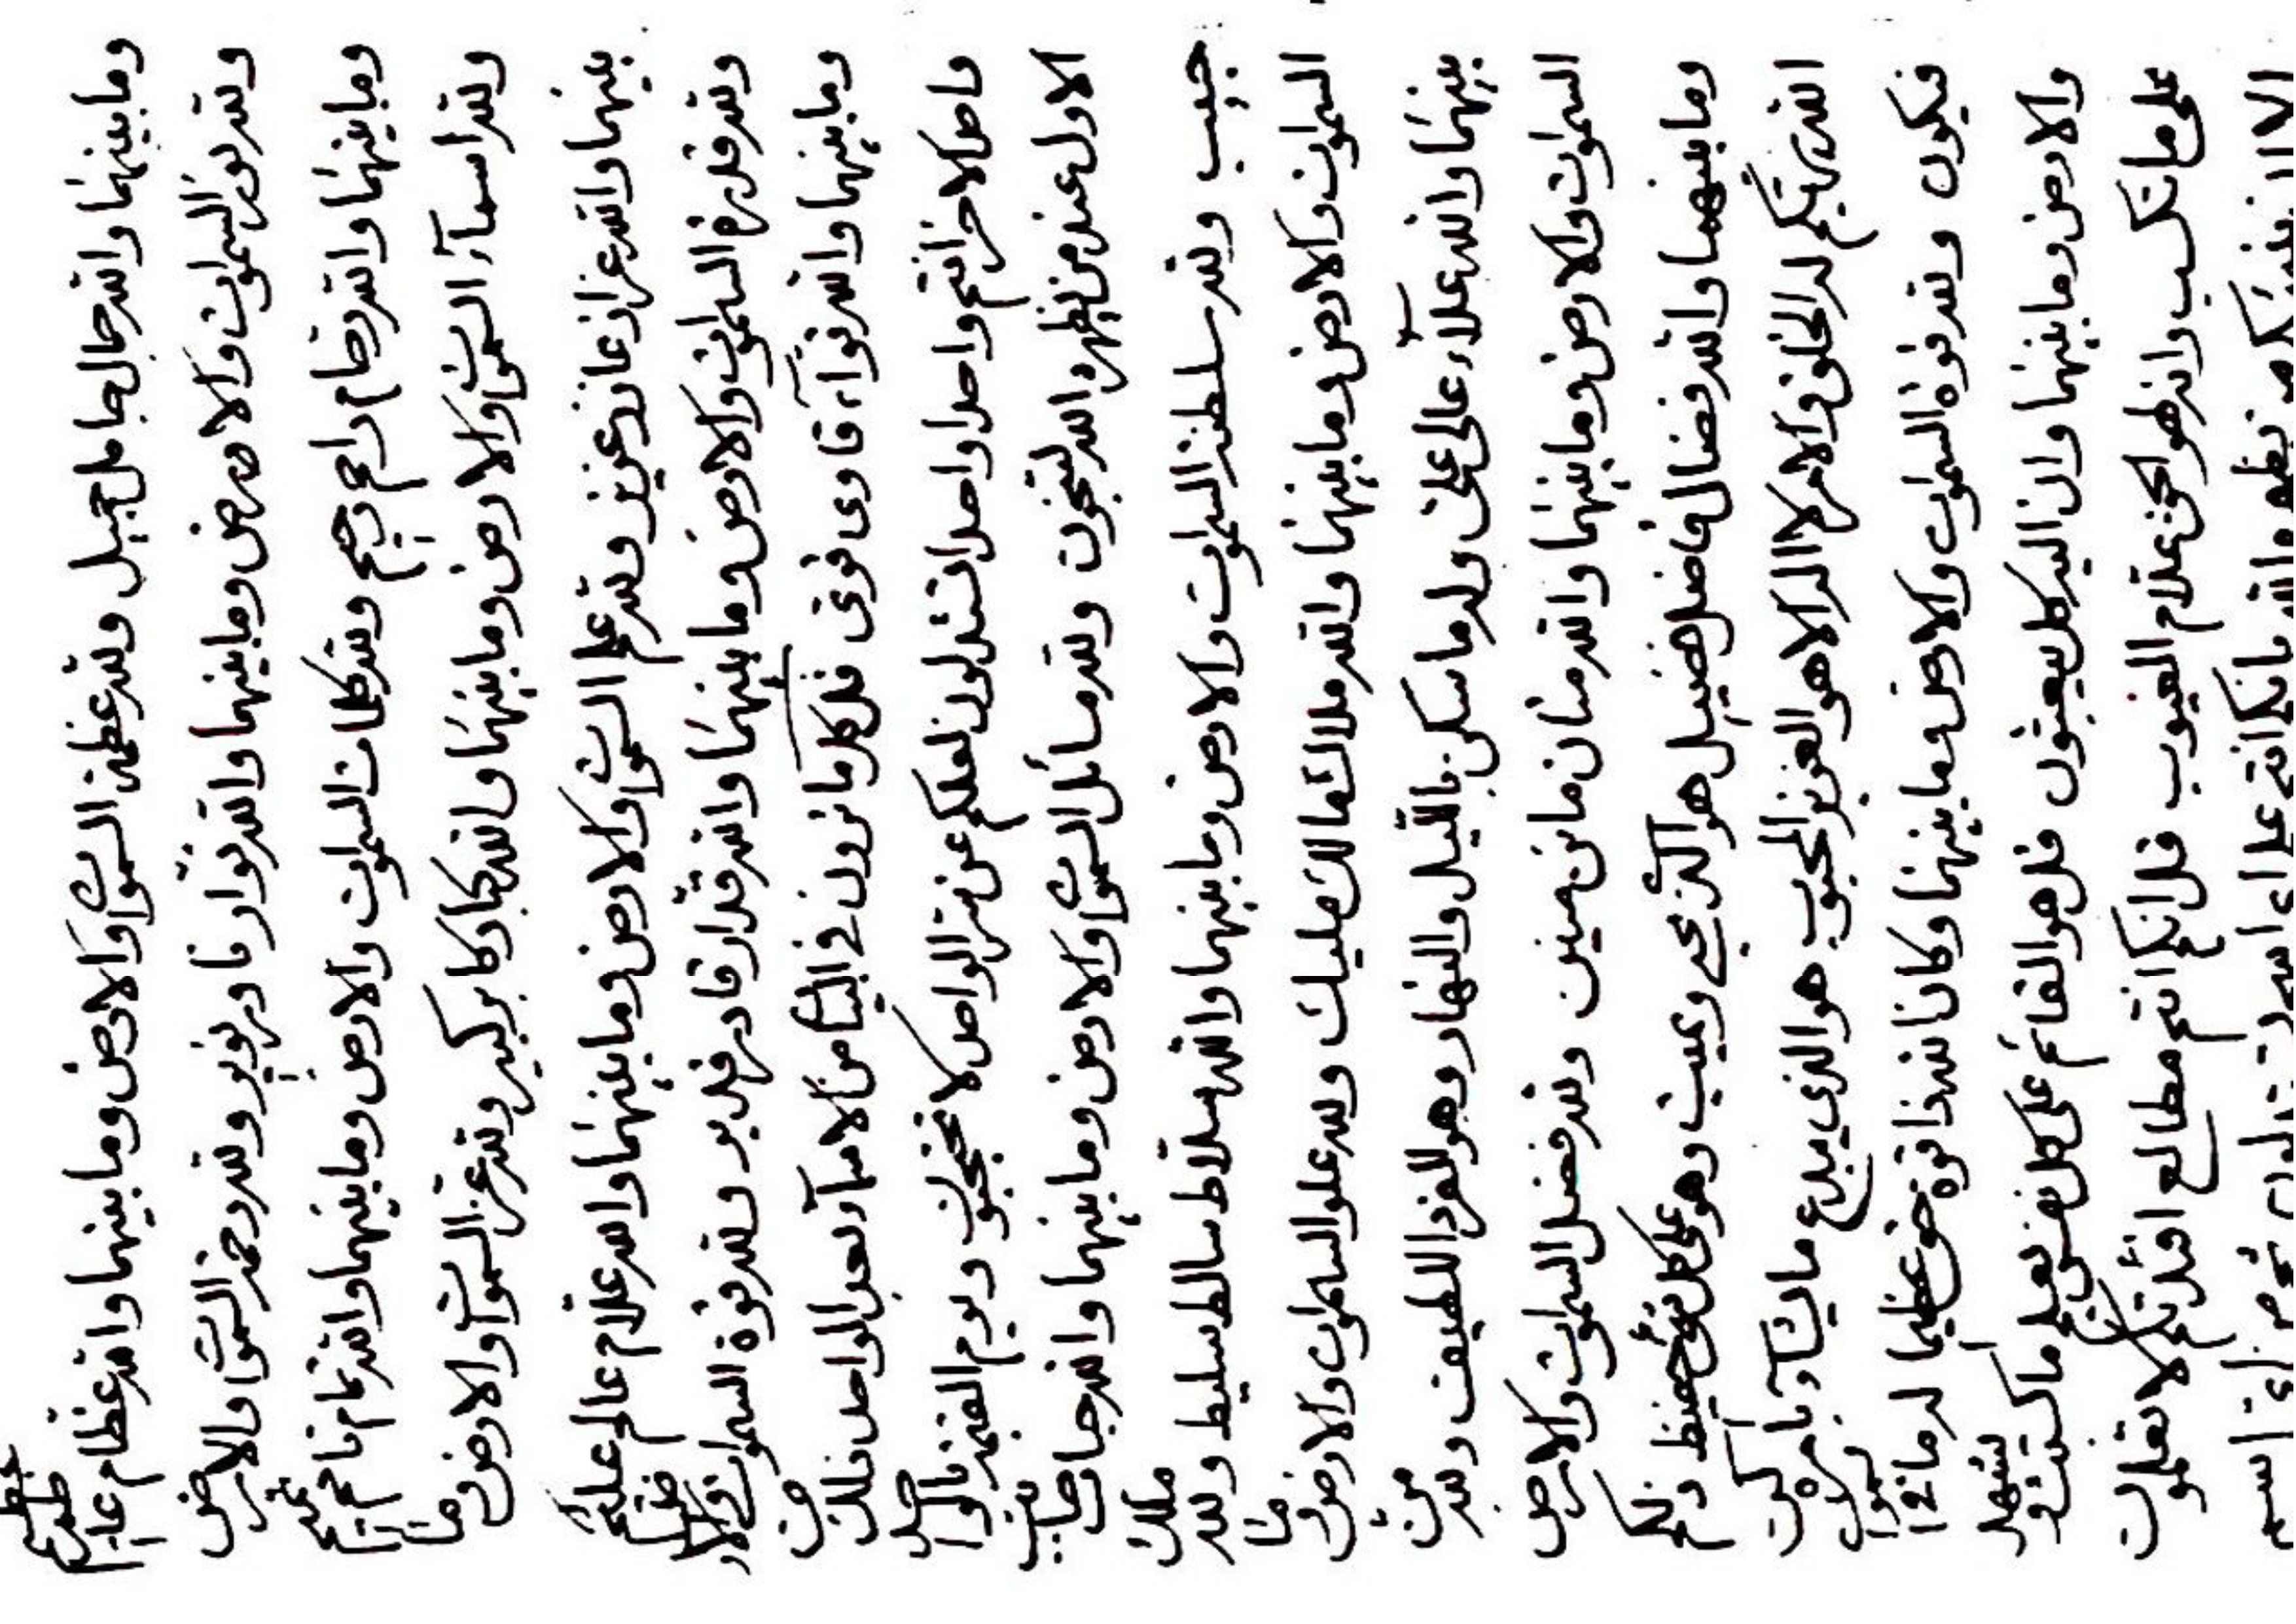 وما بينهما والله جمال جامل جميل ولله عظمة السموات والارض وما بينهما والله عظام عاظم عظيم
ولله نور السموات والارض وما بينهما والله نوار ناور نوير ولله رحمة السموات والارض
وما بينهما والله رحام راحم رحيم ولله كلمات السموات والارض وما بينهما والله تمام تامم تميم
ولله اسمآء السموات والارض وما بينهما والله كبار كابر كبير ولله عزة السموات والارض وما
بينهما والله عزاز عازز عزيز ولله علم السموات والارض وما بينهما والله علام عالم عليم
ولله قدرة السموات والارض وما بينهما والله قدار قادر قدير ولله قوة السموات والارض
وما بينهما والله قوآء قاوى قوى قل كلما ترون في البيان من الاسمآء تعبد الواحد ذلك من
واحد الاخر انتم واحدا واحدا تستدلون لعلكم عن سر الواحد لا تحتجبون ويوم القيمة فالواحد
الاول عند من يظهره الله لتنجون ولله مسائل السموات والارض وما بينهما والله جباب جابب
جبيب ولله سلطنة السموات والارض وما بينهما والله سلاط سالط سليط ولله ملك
السموات والارض وما بينهما والله ملاك مالك مليك ولله علو السموات والارض وما
بينهما والله علآء عالى على وله ما سكن بالليل والنهار وهو الفرد اللطيف ولله من
السموات والارض وما بينهما والله منان مانن منين ولله فضل السموات والارض
وما بينهما والله فضال فاضل فضيل هو الذي يحيي ويميت وهو على كل شئ حفيظ ذلكم
الله ربكم له الخلق والامر لا اله الا هو العزيز المحبوب هو الذي يبدع ما يشآء بامره كن
فيكون ولله قوة السموات والارض وما بينهما وكان الله ذا قوة حق عظيما له ما في السموات
والارض وما بينهما وان اليه كل يبعثون قل هو القائم على كل نفس يعلم ما كسبت ويشهد
على ما تكسب وانه لهو الحق علام الغيوب قل انكم انتم مطالع افئدتكم لا تعلمون